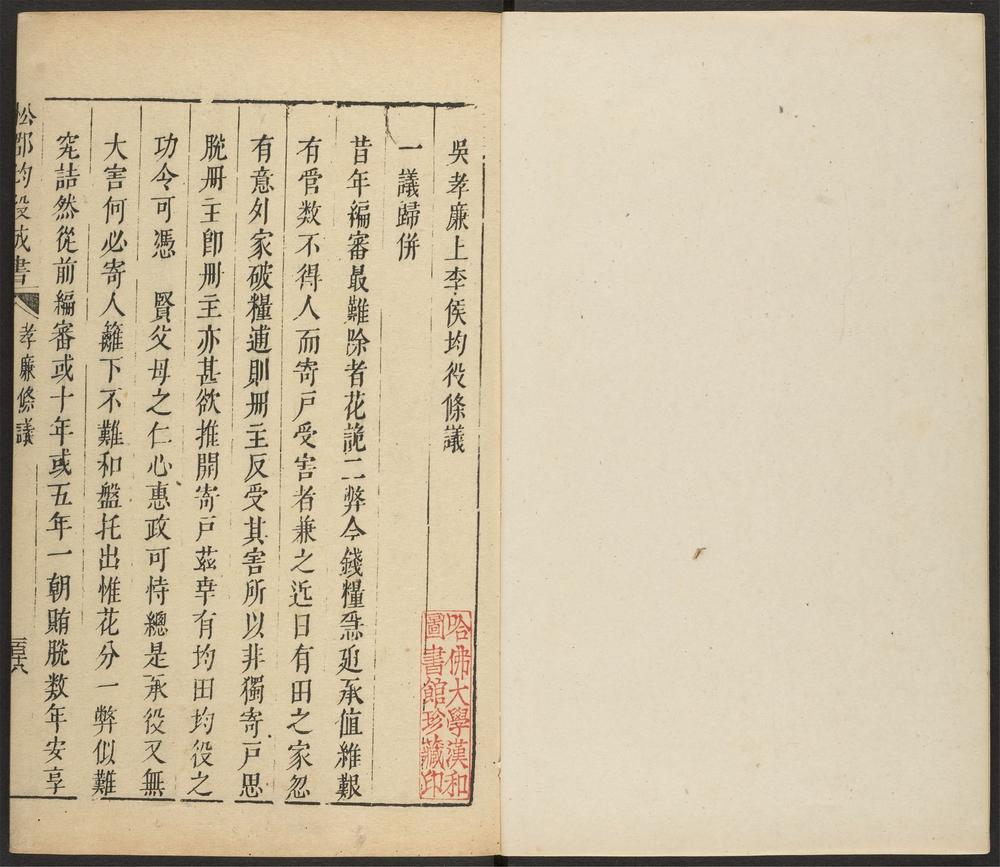 吳孝廉上李侯均役條議
一議歸併
昔年編審最難除者花詭二弊今錢糧孔亟承值維艱
有管数不得人而寄戶受害者兼之近日有田之家忽
有意外家破糧逋則冊主反受其害所以非獨寄戶思
脫冊主卽冊主亦甚欲推開寄戶茲幸有均田均役之
功令可憑　賢父母之仁心惠政可恃總是承役又無
大害何必寄人籬下不難和盤托出惟花分一弊似難
究詰然從前編審或十年或五年一朝賄脫数年安享
松郡均役成書
孝廉條議
哈佛大學漢和
圖書館珍藏印